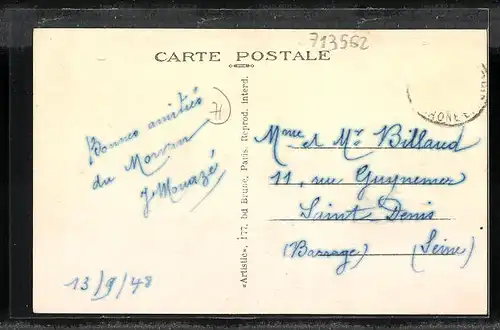 713562
CARTE POSTALE
71
Bonnes amitiés
du Morvan
J Mouazé
13/9/48
«Artistic», 177, bd Brune, Paris. Reprod. interd.
Mme et Mr Billaud
11, rue Guynemer
Saint Denis
(Barrage) (Seine)